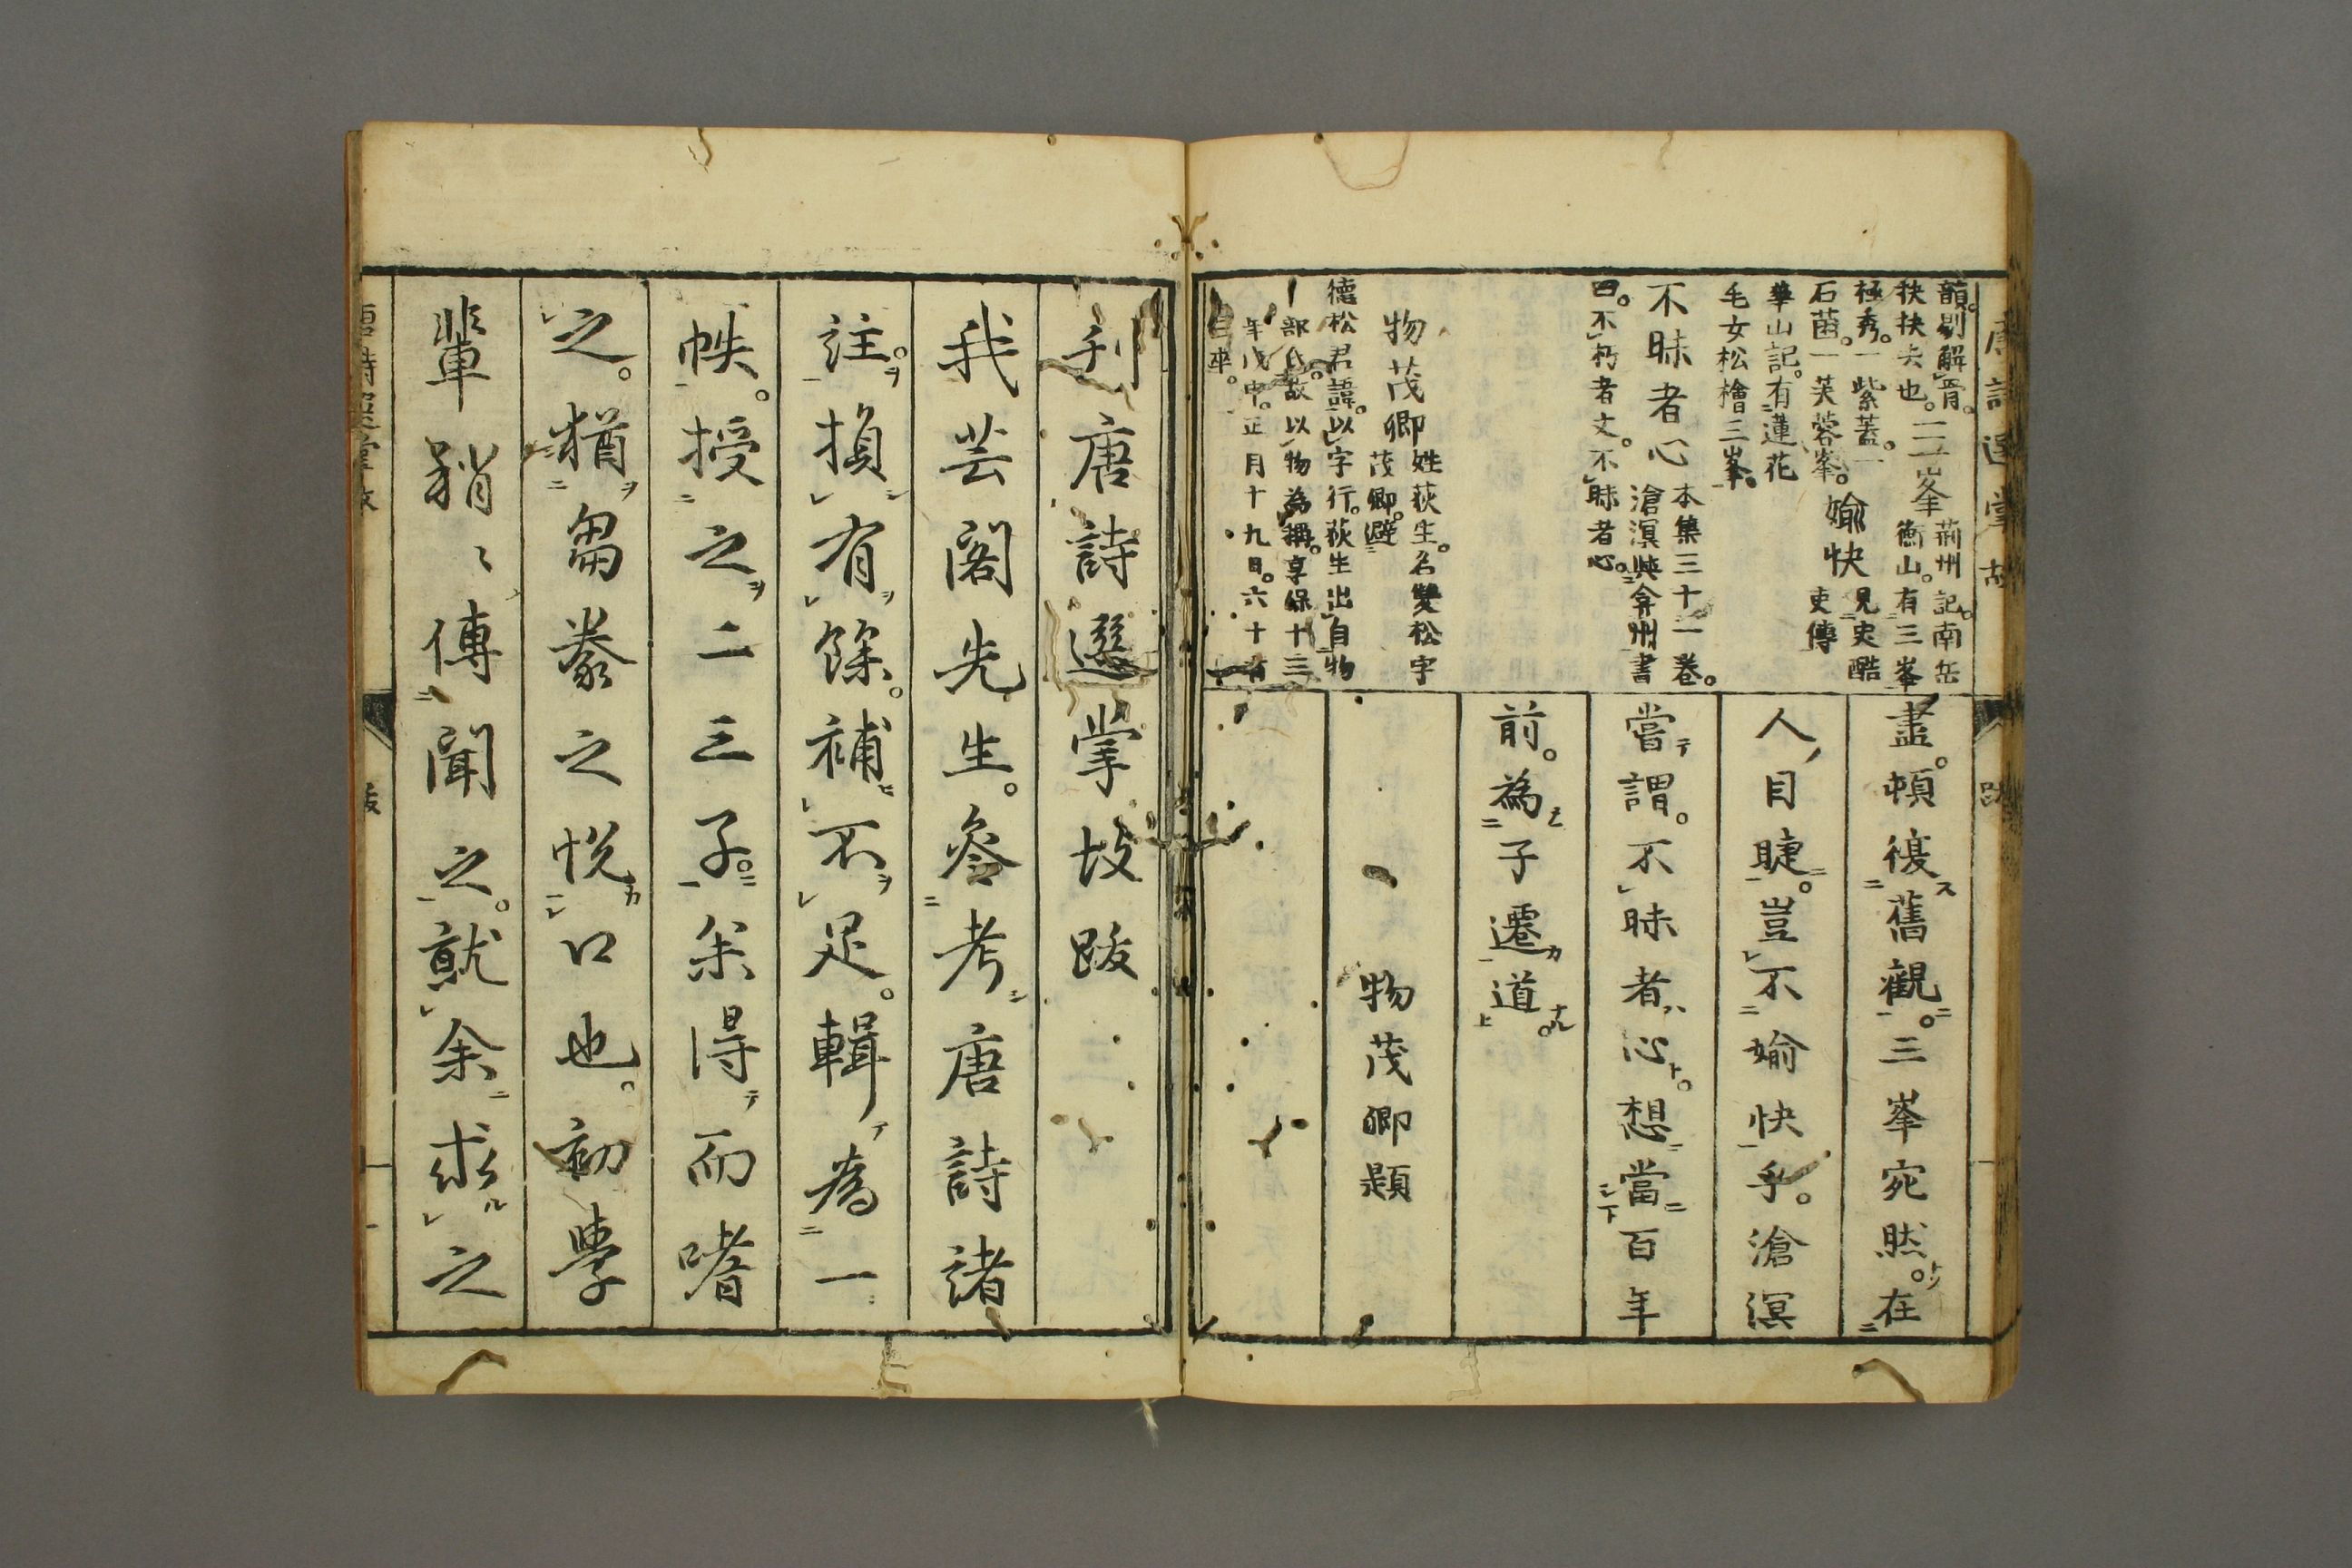 唐詩選掌故
跋
韻。剔解骨。
抉扶尖也。三峯荊州記。南岳
衡山。有三峯
極秀。一紫蓋。一
石菌。一芙蓉峯。媮快見史酷
吏傳
華山記。有蓮花
毛女松檜三峯。
不昧者心本集三十一卷。
滄溟與弇州書
曰。不朽者文。不昧者心。
物茂卿姓荻生。名雙松字
茂卿。避
德松君諱。以字行。荻生出自物
部氏。故以物為稱。享保十三
年戊申。正月十九日。六十有
三卒。
盡。頓復舊觀。三峯宛然。在
人目睫。豈不媮快乎。滄溟
嘗謂。不昧者心。想當百年
前。為子遷道。
物茂卿題
刊唐詩選掌故跋
我芸閣先生。叅考唐詩諸
註。損有餘。補不足。輯為一
帙。授之二三子。余得而嗜
之。猶芻豢之悅口也。初學
輩稍〻傳聞之。就余求之
唐詩選掌故
跋